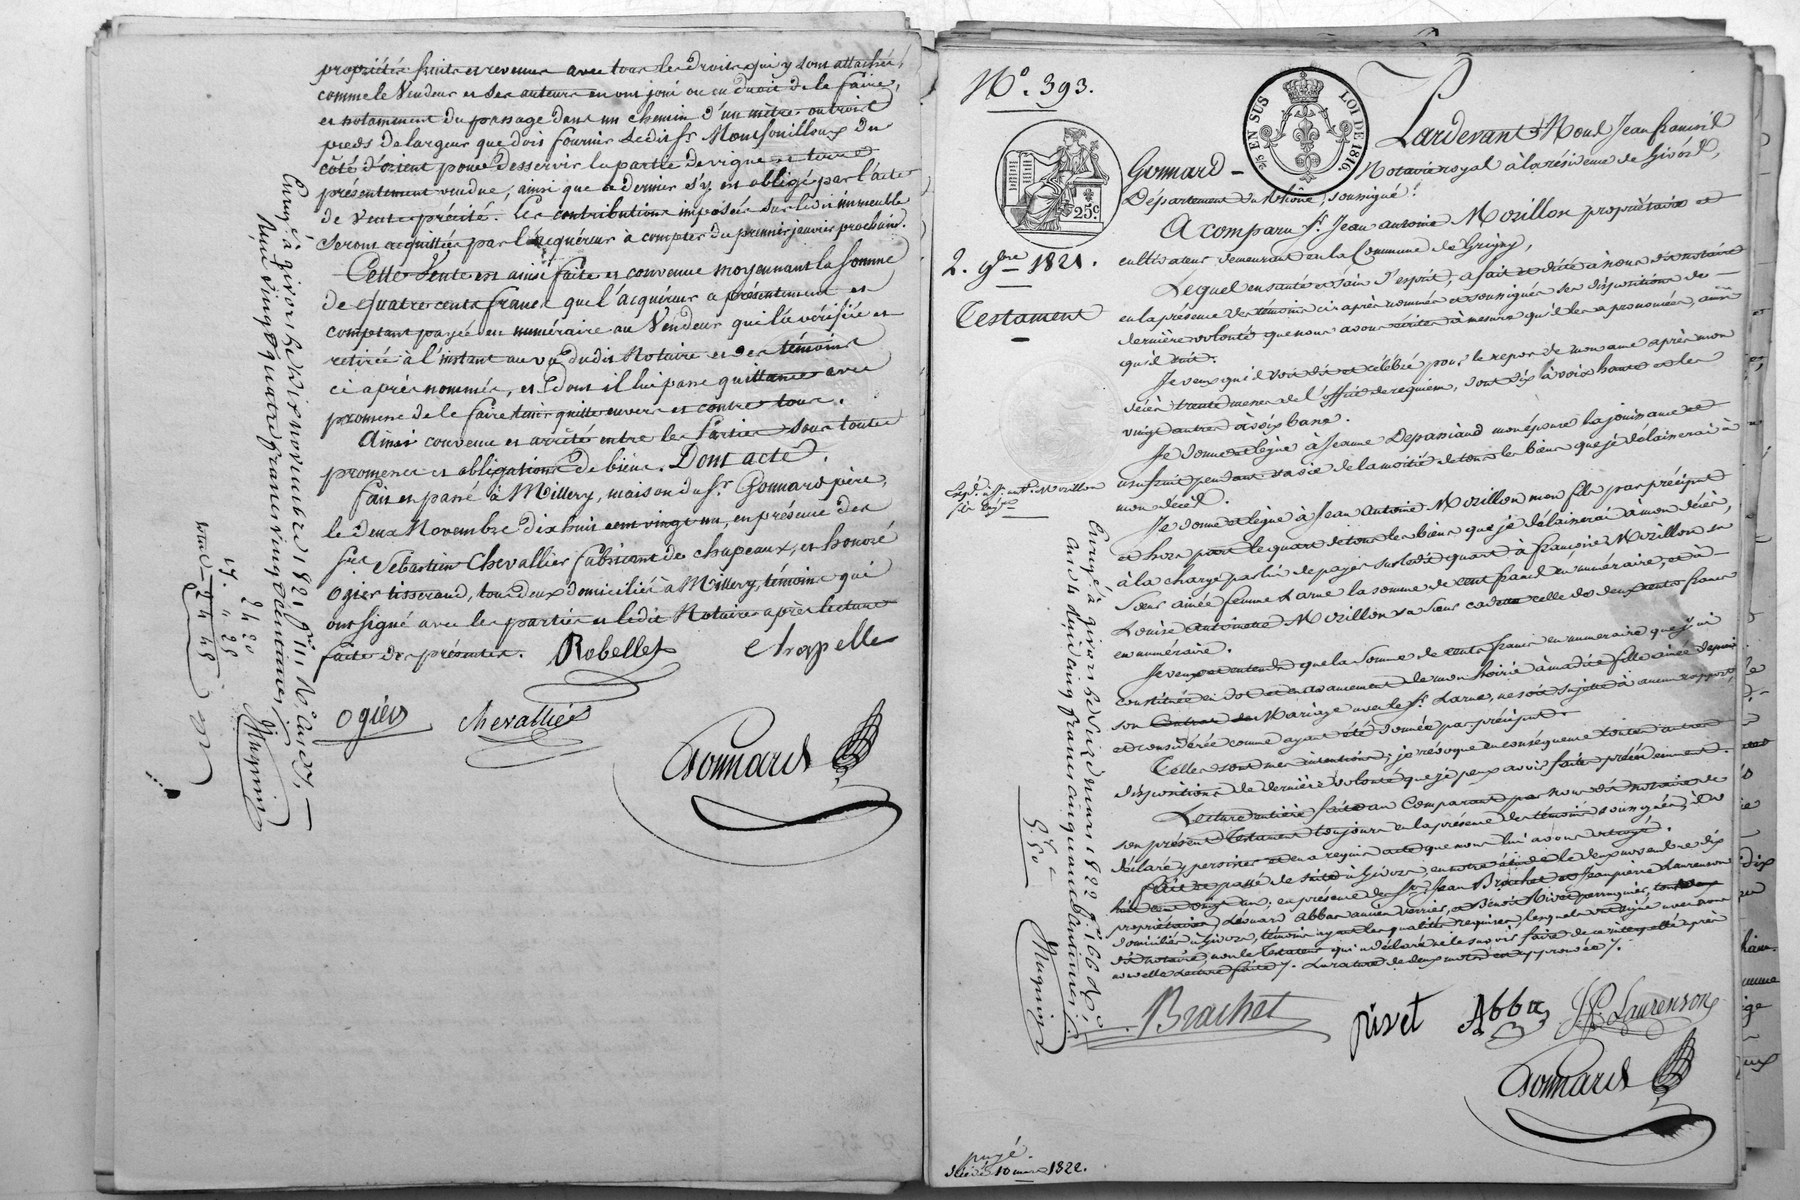 propriétés fruits et revenus avec tous les droits qui y sont attachés,
comme le Vendeur et ses auteurs en ont joui ou eu droit de le faire,
et notamment du passage dans un chemin d'un mètre ou trois
pieds de largeur que dois fournir ledit Sr. Montfouilloux du
côté d'orient pour desservir la partie de vigne et terre
présentement vendue, ainsi que ce dernier s'y est obligé par l'acte
de Vente précité. Les contributions imposées sur ledit immeuble
seront acquittées par l'acquéreur à compter du premier janvier prochain.
Cette Vente est ainsi faite et convenue moyennant la somme
de quatre cents francs que l'acquéreur a présentement et
comptant payée en numéraire au Vendeur qui l'a vérifiée et
retirée à l'instant au vu dudit Notaire et des témoins
ci après nommés, et dont il lui passe quittance avec
promesse de le faire tenir quitte envers et contre tous.
Ainsi convenu et arrêté entre les Parties sous toutes
promesses et obligations de biens. Dont acte.
fait et passé à Millery, maison du Sr. Gonnard père,
le deux Novembre dix huit cent vingt un, en présence des
Srs Sébastien Chevallier fabricant de chapeaux, et honoré
Ogier tisserand, tous deux domiciliés à Millery, témoins qui
ont signé avec les parties et ledit Notaire après lecture
faite des présentes. Robellet Chapelle
Ogiers Chevalliés
Gonnard
Enreg.é à givors le dix novembre 1821 fo 111 No
Reçu vingt quatre francs vingt centimes
24 20
2 28
total 24 48
Muguin
No. 393.
25 EN SUS LOI DE 1816
25c
2. 9bre 1821.
Testament
Pardevant Nous Jean francois
Gonnard - Notaire royal à la résidence de Givors,
Département du Rhône, soussigné:
A comparu Sr. Jean antoine Morillon propriétaire et
cultivateur demeurant en la Commune de Grigny,
Lequel en santé et sain d'esprit, a fait et dicté à nous dit notaire
en la présence des témoins ci après nommés et soussignés ses dispositions de
dernière volonté que nous avons écrites à mesure qu'il les a prononcées, ainsi
qu'il suit.
Je veux qu'il soit dit et célébré pour le repos de mon ame après mon
décès trente messes de l'office de requiem, dont dix à voix haute et les
vingt autres à voix basse.
Je donne et lègue à Jeanne Depassiaud mon épouse la jouissance et
usufruit pendant sa vie de la moitié de tous les biens que je délaisserai à
mon décès.
Je donne et lègue à Jean Antoine Morillon mon fils par préciput
et hors part le quart de tous les biens que je délaisserai à mon décès,
à la charge par lui de payer sur ledit quart à françoise Morillon sa
soeur ainée femme Larue la somme de cent francs en numéraire, et à
Louise Antoinette Morillon sa soeur cadette celle de deux cents francs
en numéraire.
Je veux et entends que la somme de cents francs en numéraire que j'ai
constituée en dot et en avancement de mon hoirie à madite fille ainée depuis
son Contrat de Mariage avec le Sr. Larue, ne soit sujette à aucun rapport,
et considérée comme ayant été donnée par préciput.
Telles sont mes intentions; je révoque en conséquence toutes autres
dispositions de dernière volonté que je peux avoir faites précédemment.
Lecture entière faite au Comparant par nous dit notaire de
son présent Testament toujours en la présence des témoins soussignés, il a
déclaré y persister et en a requis acte que nous lui avons octroyé.
Fait et passé de suite à Givors, en notre étude le deux novembre dix
huit cent vingt un, en présence de Srs. Jean Brachet et Jean pierre Laurenson
propriétaires, Léonard Abbas ancien verrier, et Benoit Rivet perruquier, tous deux
domiciliés à Givors, témoins ayant les qualités requises, lesquels ont signé avec nous
dit notaire, non le Testateur qui a déclaré ne le savoir faire de ce interpellé après
nouvelle lecture faite /. La rature de deux mots est approuvée /.
Brachet pivet Abba J.P. Laurenson
Gonnard
Enreg.é à givors le seize mars 1822 fo 166
Reçu cinq francs cinquante centimes
5.50
Muguin
payé
10 mars 1822.